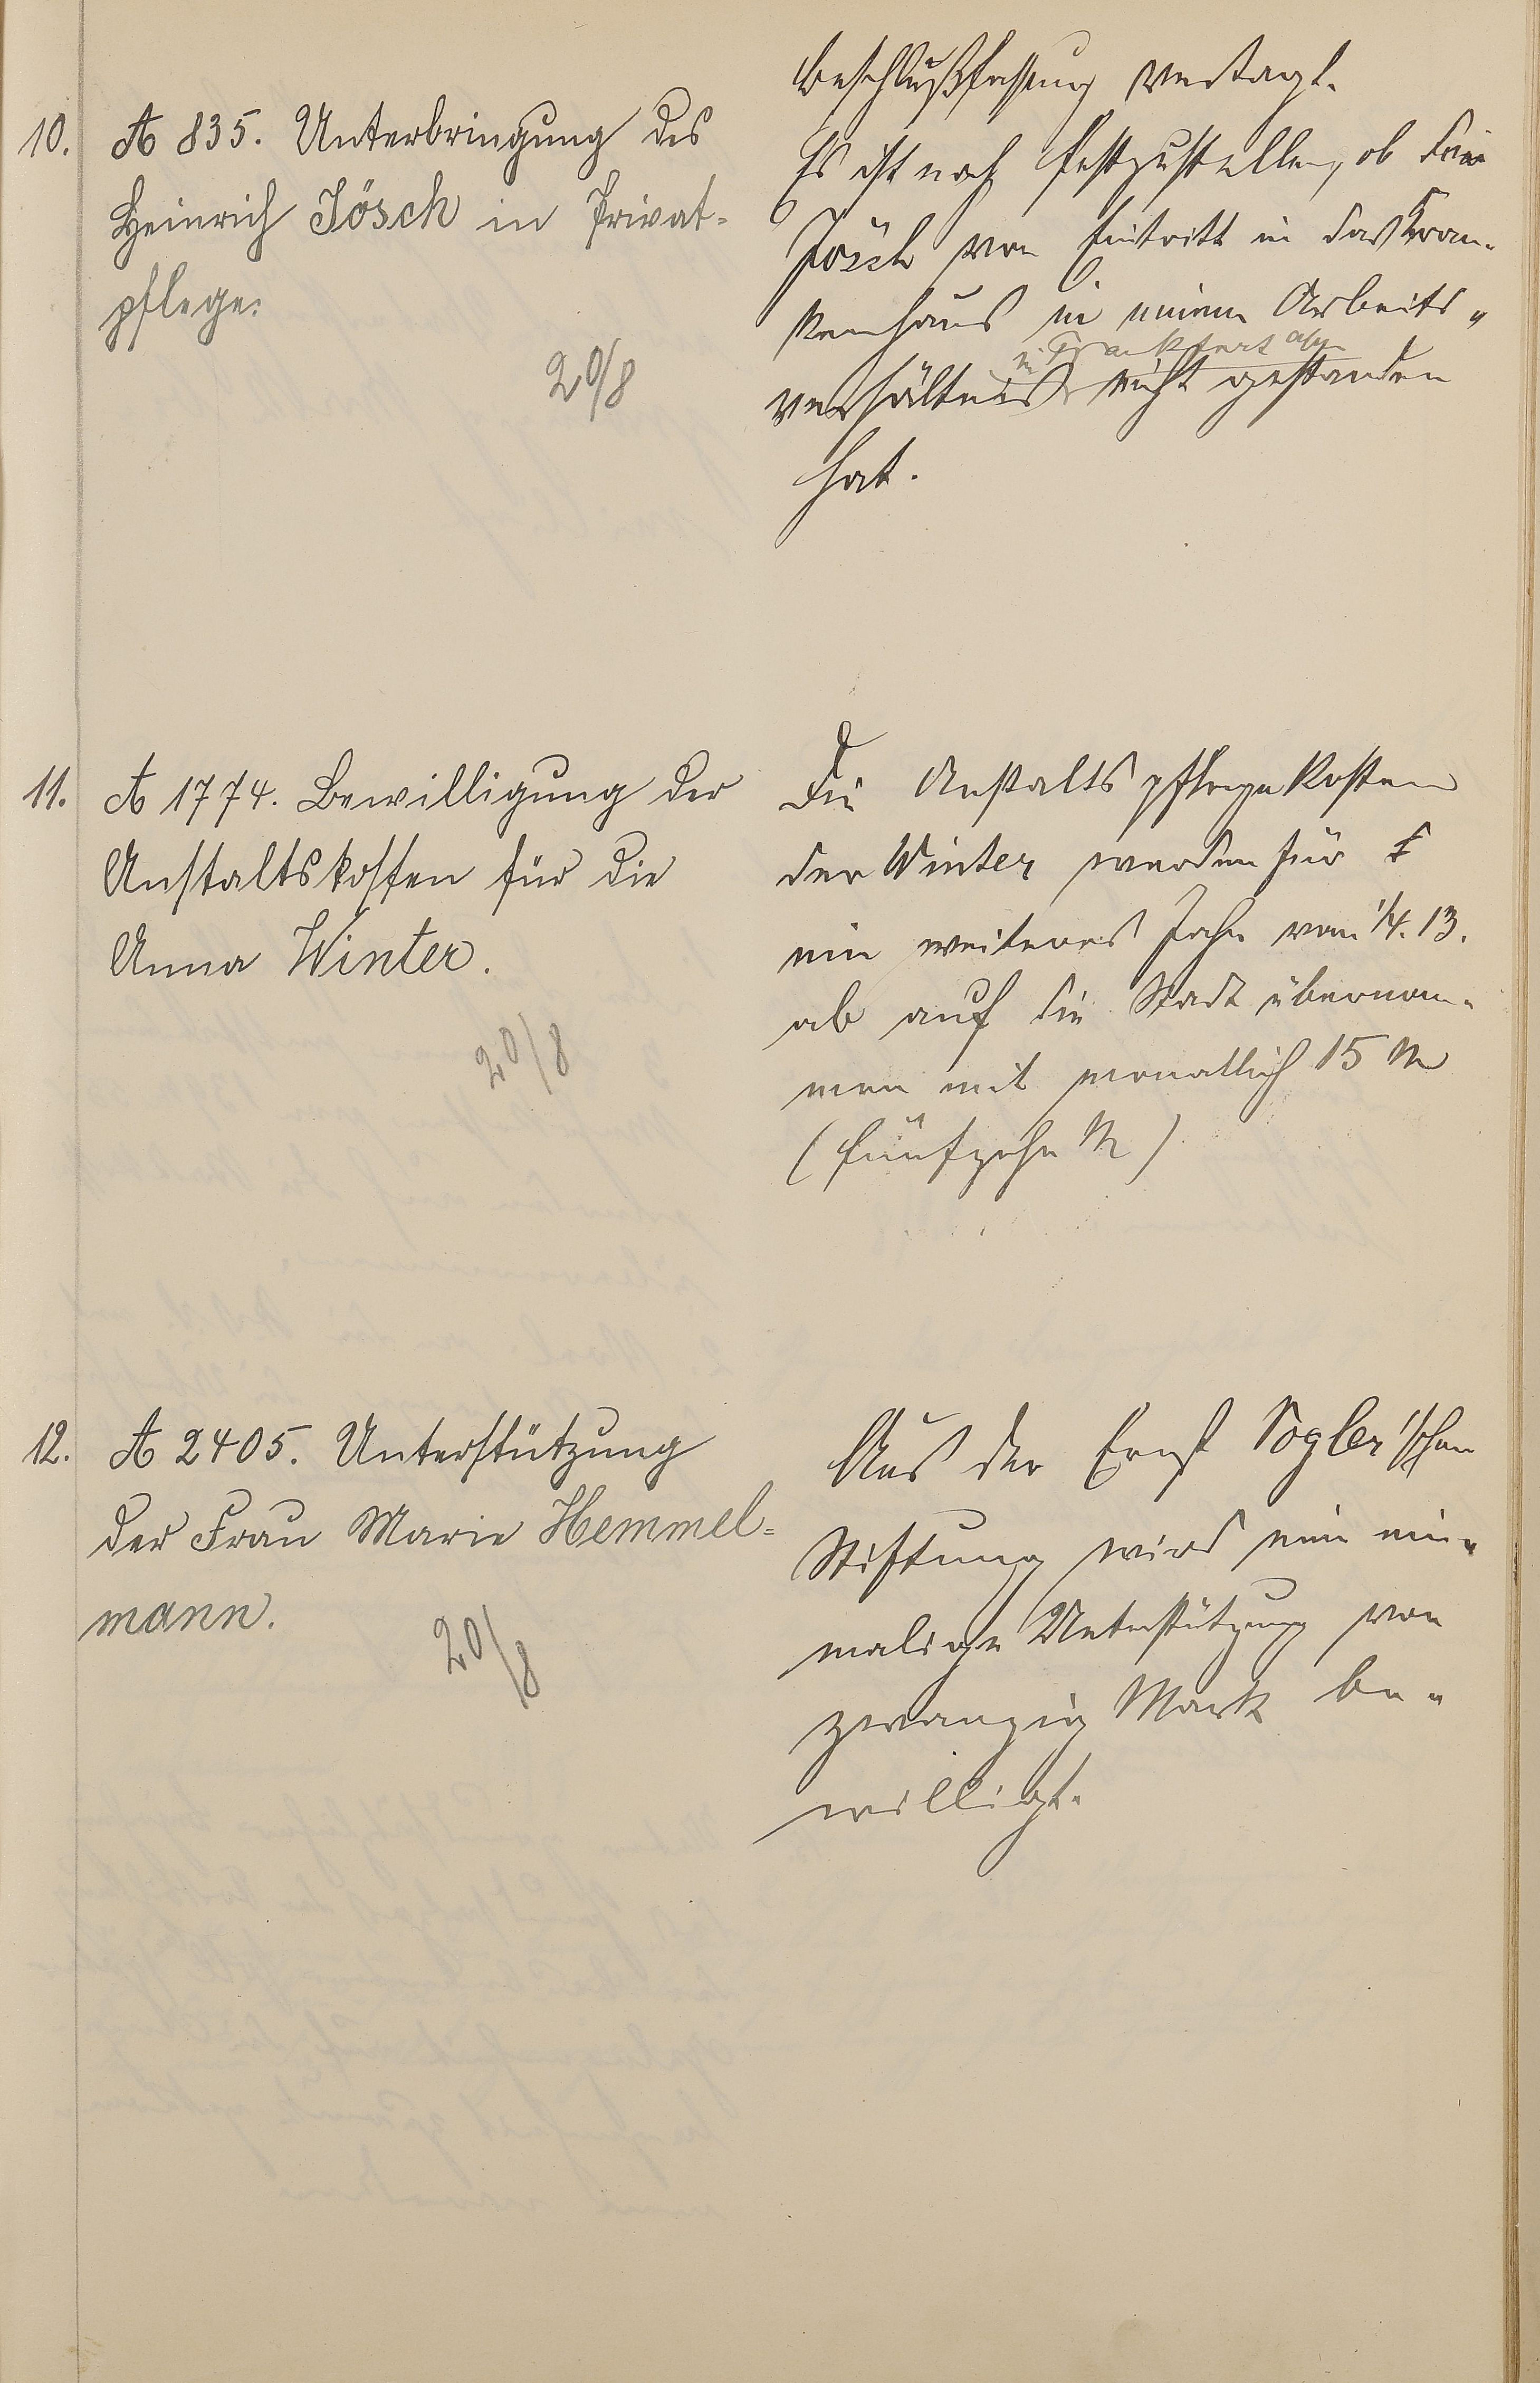 10. A 835. Unterbringung des
Heinrich Jösch in Privat-
pflege.
20/8
Beschlußfassung vertagt.
Es ist noch festzustellen, ob
Jösch vor Eintritt in das Kran-
kenhaus in einem Arbeits-
in Frankfurt a/M
verhältnis nicht gestanden
hat.
11. A 1774. Bewilligung der
Anstaltskosten für die
Anna Winter.
20/8
Die Anstaltspflegekosten
der Winter werden für
ein weiteres Jahr vom 1/4. 13.
ab auf die Stadt übernom-
men mit monatlich 15 M
(fünfzehn M)
12. A 2405. Unterstützung
der Frau Marie Hemmel-
mann.
20/8
Aus der Ernst Vogler'schen
Stiftung wird eine ein-
malige Unterstützung von
zwanzig Mark be-
willigt.